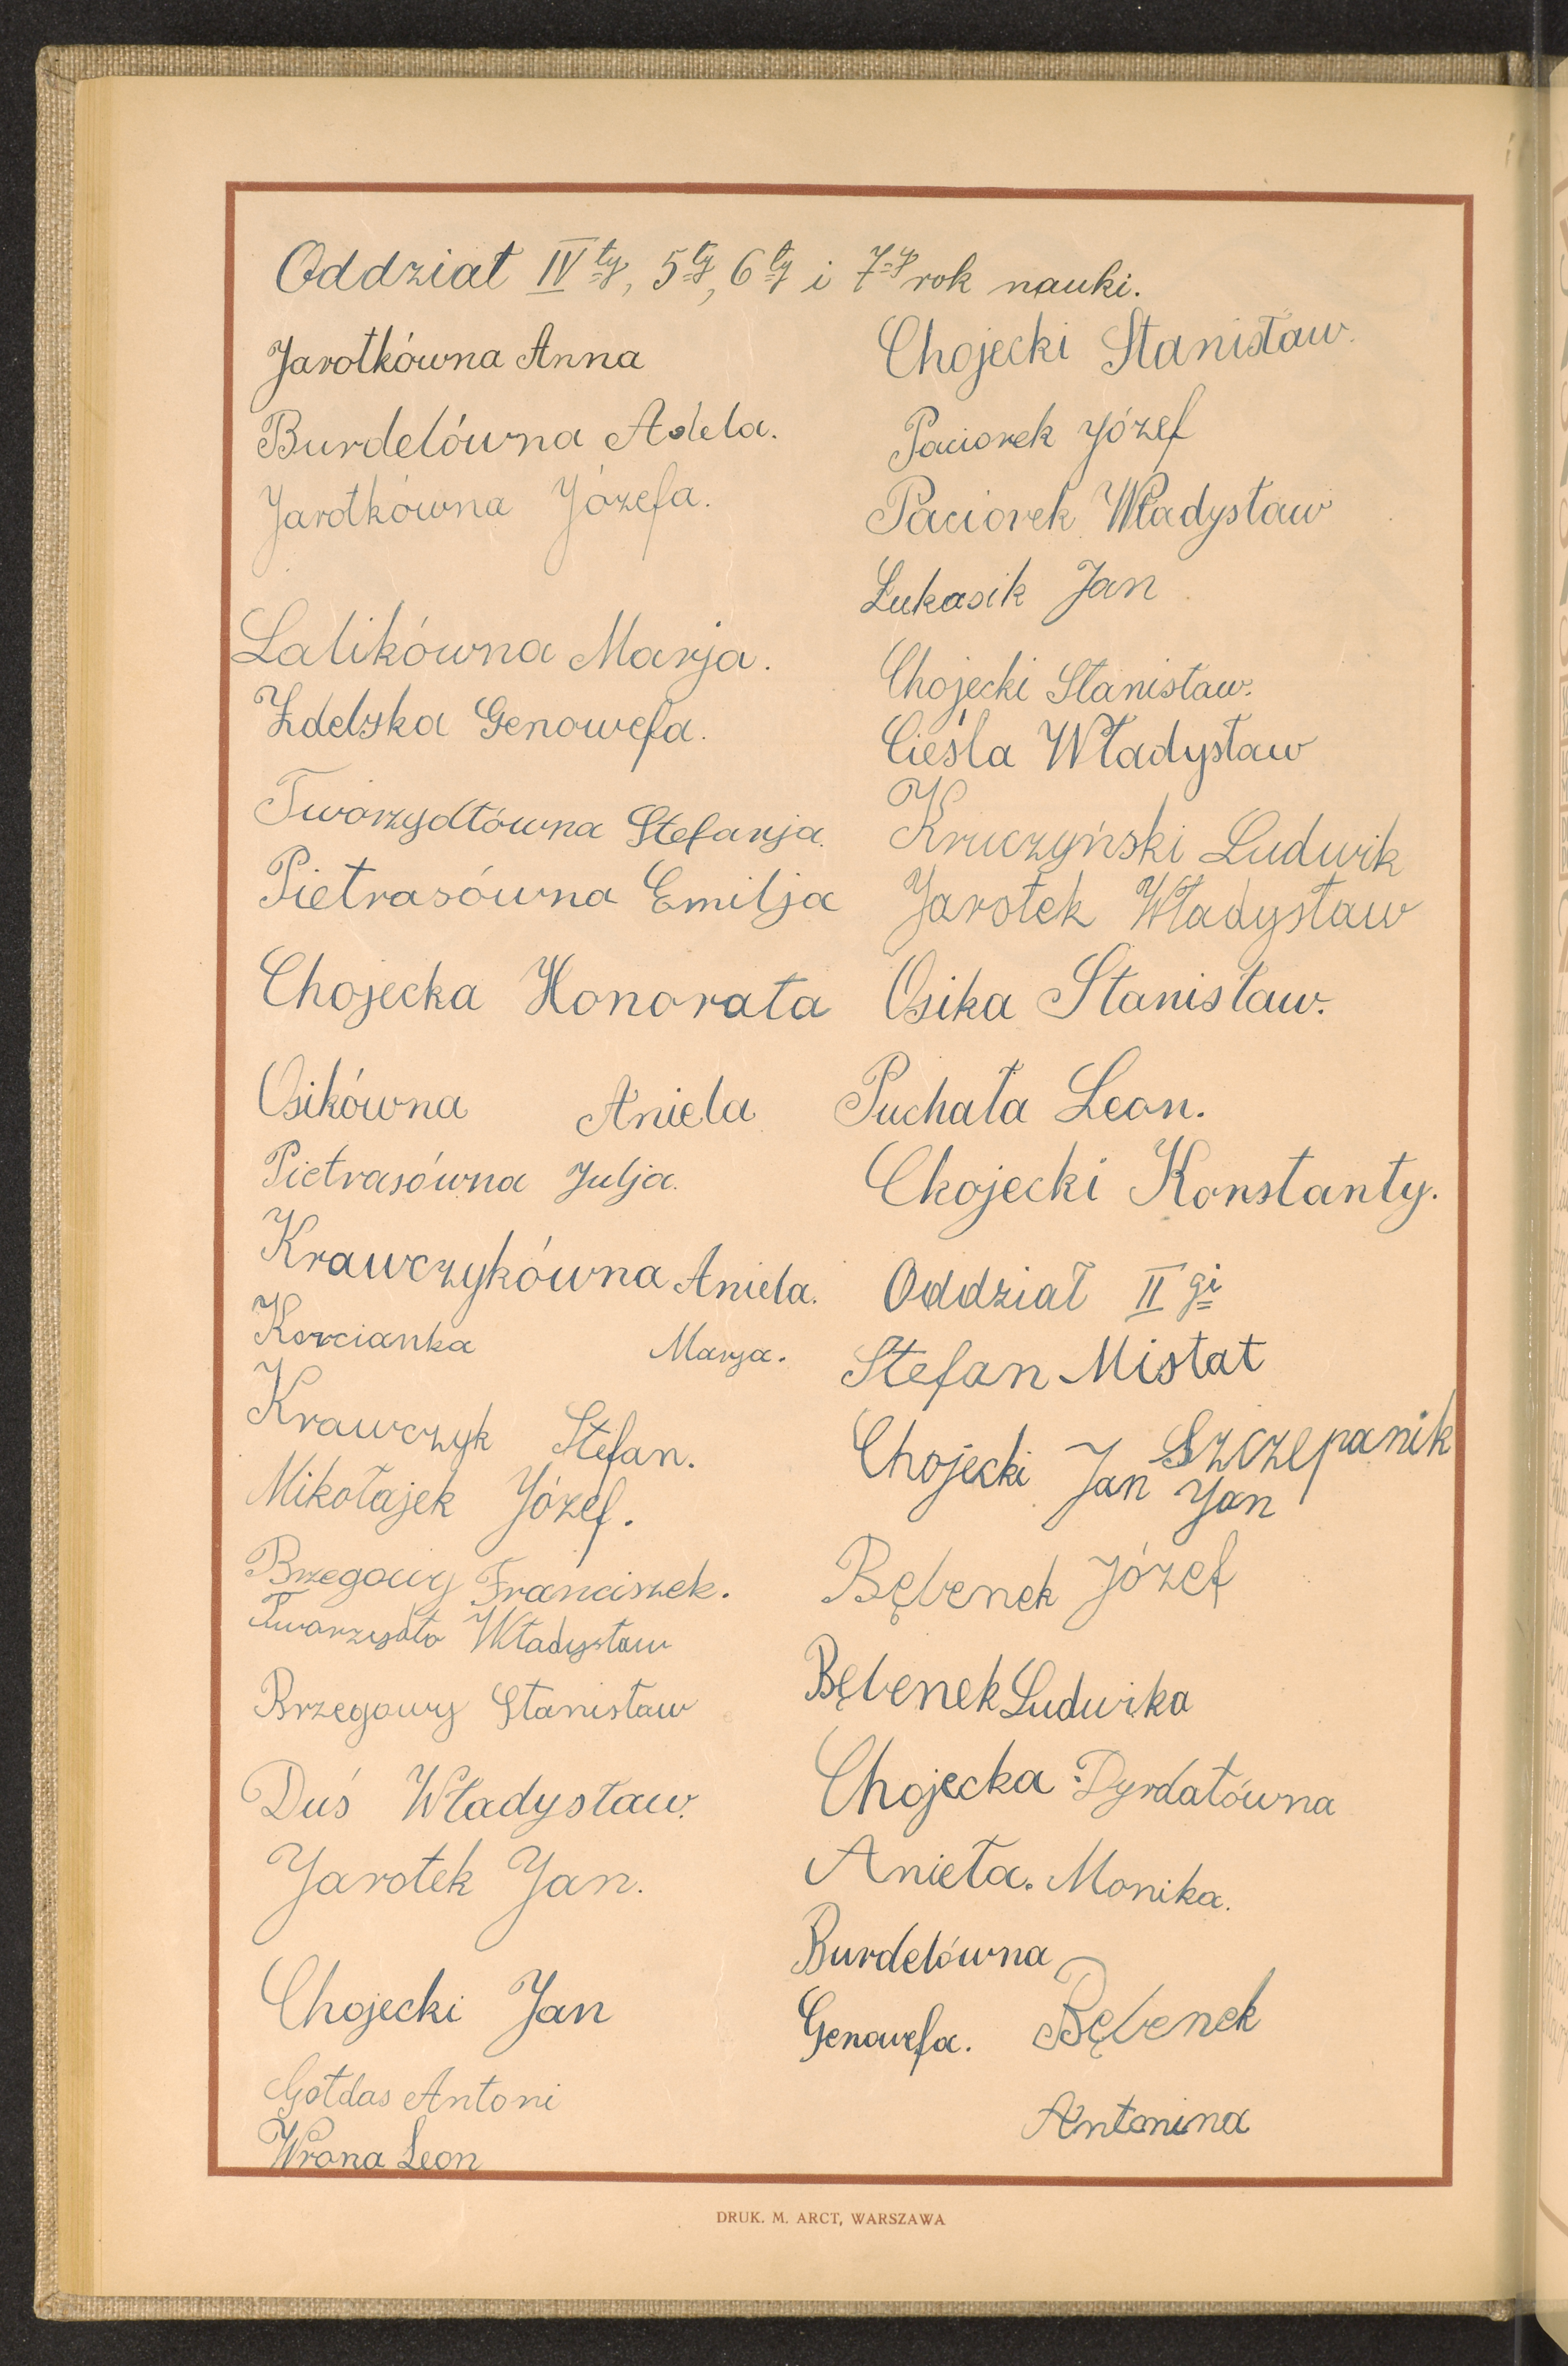 Oddział IVty, 5ty, 6ty i 7-y rok nauki.
Jarotkówna Anna
Burdelówna Adela.
Jarotkówna Józefa.
Lalikówna Marja.
Zdelska Genowefa.
Tworzydłówna Stefanja.
Pietrasówna Emilja
Chojecka Honorata
Osikówna Aniela
Pietrasówna Julja.
Krawczykówna Aniela.
Korcianka Marja.
Krawczyk Stefan.
Mikołajek Józef.
Brzegowy Franciszek.
Twarzydło Władysław
Brzegowy Stanisław
Duś Władysław.
Jarotek Jan.
Chojecki Jan
Gołdas Antoni
Wrona Leon
Chojecki Stanisław.
Paciorek Józef
Paciorek Władysław
Łukasik Jan
Chojecki Stanisław.
Cieśla Władysław
Kruczyński Ludwik
Jarotek Władysław
Osika Stanisław.
Puchała Leon.
Chojecki Konstanty.
Oddział II gi
Stefan Mistat
Chojecki Jan Szczepanik
Jan
Bębenek Józef
Bębenek Ludwika
Chojecka Dyrdałówna
Anieła. Monika.
Burdelówna
Genowefa. Bębenek
Antonina
DRUK. M. ARCT, WARSZAWA